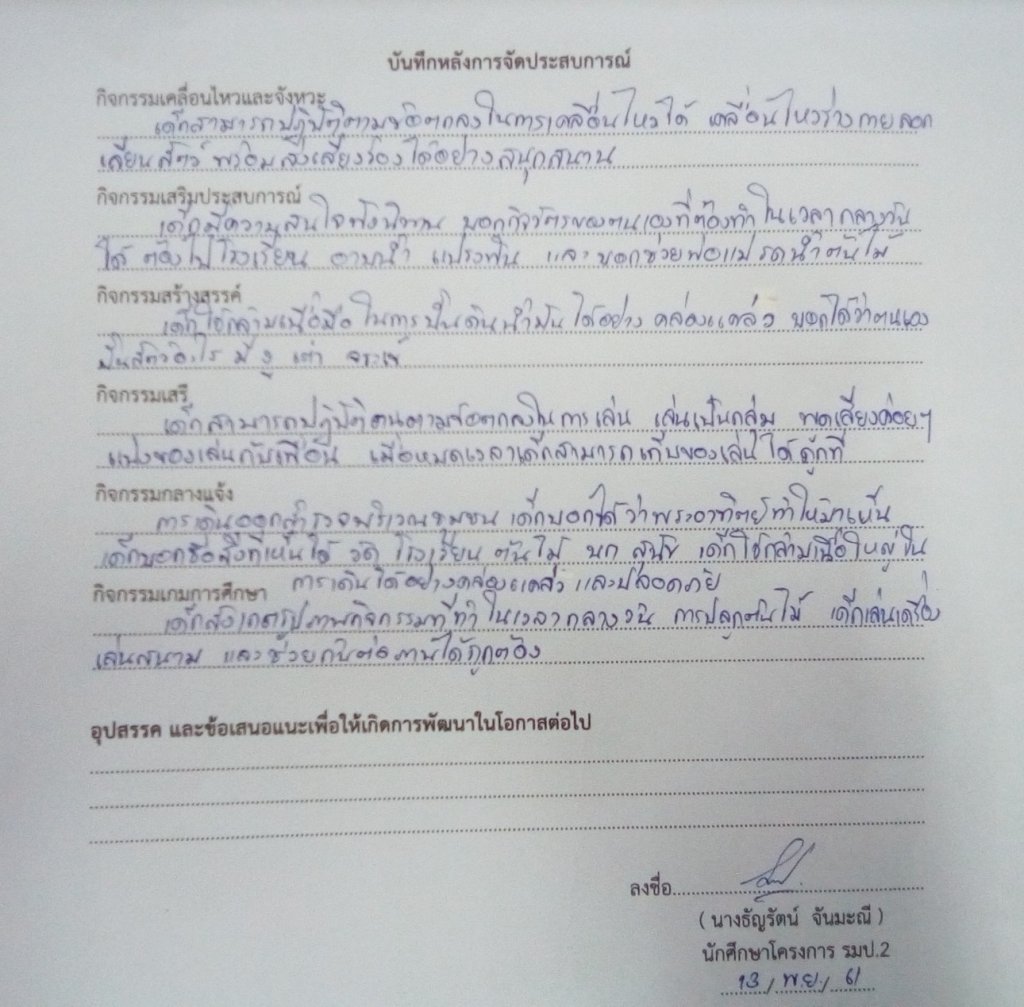 บันทึกหลังการจัดประสบการณ์
กิจกรรมเคลื่อนไหวและจังหวะ
เด็กสามารถปฏิบัติตามข้อตกลงในการเคลื่อนไหวได้ เคลื่อนไหวร่างกายลอก
เลียนสัตว์ พร้อมส่งเสียงร้องได้อย่างสนุกสนาน
กิจกรรมเสริมประสบการณ์
เด็กมีความสนใจฟังนิทาน บอกกิจวัตรของตนเองที่ต้องทำในเวลากลางวัน
ได้ ต้องไปโรงเรียน อาบน้ำ แปรงฟัน และบอกช่วยพ่อแม่รดน้ำต้นไม้
กิจกรรมสร้างสรรค์
เด็กใช้กล้ามเนื้อมือในการปั้นดินน้ำมันได้อย่างคล่องแคล่ว บอกได้ว่าตนเอง
ปั้นสัตว์อะไร มี งู เต่า จระเข้
กิจกรรมเสรี
เด็กสามารถปฏิบัติตนตามข้อตกลงในการเล่น เล่นเป็นกลุ่ม พูดเสียงค่อยๆ
แบ่งของเล่นกับเพื่อน เมื่อหมดเวลาเด็กสามารถเก็บของเล่นได้ถูกที่
กิจกรรมกลางแจ้ง
การเดินออกสำรวจบริเวณชุมชน เด็กบอกได้ว่าพระอาทิตย์ทำให้มาเห็น
เด็กบอกชื่อสิ่งที่เห็นได้ วัด โรงเรียน ต้นไม้ นก สุนัข เด็กใช้กล้ามเนื้อใหญ่ใน
การเดินได้อย่างคล่องแคล่ว และปลอดภัย
กิจกรรมเกมการศึกษา
เด็กสังเกตรูปภาพกิจกรรมที่ทำในเวลากลางวัน การปลูกต้นไม้ เด็กเล่นเครื่อง
เล่นสนาม และช่วยกันต่อภาพได้ถูกต้อง
อุปสรรค และข้อเสนอแนะเพื่อให้เกิดการพัฒนาในโอกาสต่อไป
ลงชื่อ
( นางธัญรัตน์ จันมะณี )
นักศึกษาโครงการ รมป.2
13 / พ.ย. / 61